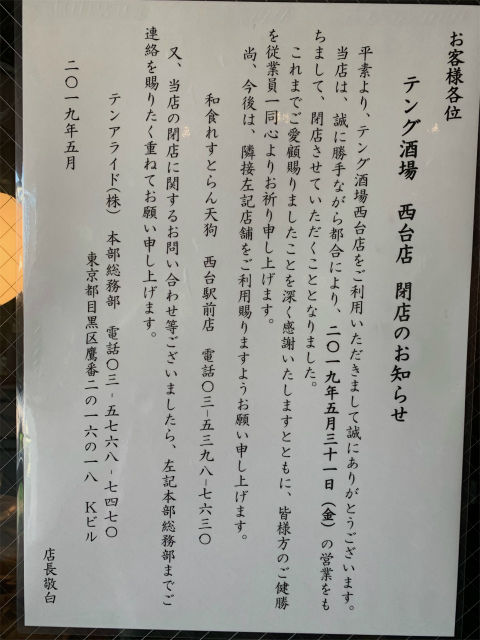 お客様各位
テング酒場　西台店　閉店のお知らせ
平素より、テング酒場西台店をご利用いただきまして誠にありがとうございます。
当店は、誠に勝手ながら都合により、二〇一九年五月三十一日（金）の営業をも
ちまして、閉店させていただくこととなりました。
これまでご愛顧賜りましたことを深く感謝いたしますとともに、皆様方のご健勝
を従業員一同心よりお祈り申し上げます。
尚、今後は、隣接左記店舗をご利用賜りますようお願い申し上げます。
和食れすとらん天狗　西台駅前店　電話〇三-五三九八-七六三〇
又、当店の閉店に関するお問い合わせ等ございましたら、左記本部総務部までご
連絡を賜りたく重ねてお願い申し上げます。
テンアライド(株)　本部総務部　電話〇三-五七六八-七四七〇
東京都目黒区鷹番二の一六の一八　Ｋビル
二〇一九年五月
店長敬白